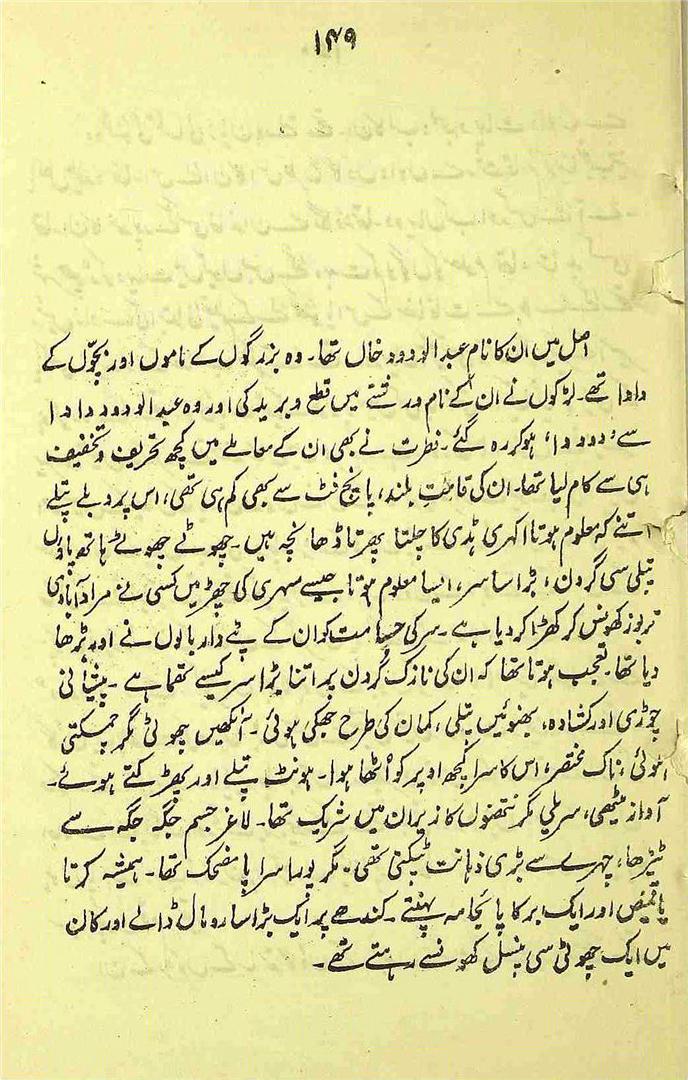 ۱۴۹
اصل میں ان کا نام عبدالودود خاں تھا۔ وہ بزرگوں کے ناموں اور بچّوں کے
دادا تھے۔ لڑکوں نے ان کے نام و رشتے میں قطع و برید کی اور وہ عبدالودود دادا
سے ’دودودا‘ ہو کر رہ گئے۔ فطرت نے بھی ان کے معاملے میں کچھ تحریف و تخفیف
ہی سے کام لیا تھا۔ ان کی قامتِ بلند، پانچ فٹ سے بھی کم ہی تھی، اس پر دبلے پتلے
اتنے کہ معلوم ہوتا اکہری ہڈی کا چلتا پھرتا ڈھانچہ ہیں۔ چھوٹے چھوٹے ہاتھ پاؤں
پتلی سی گردن، بڑا سا سر، ایسا معلوم ہوتا جیسے مسہری کی چھڑ میں کسی نے مرادآبادی
تربوز کھونس کر کھڑا کر دیا ہے۔ سر کی جسامت کو ان کے پٹے دار بالوں نے اور بڑھا
دیا تھا۔ تعجب ہوتا تھا کہ ان کی نازک گردن پر اتنا بڑا سر کیسے تھما ہے۔ پیشانی
چوڑی اور کشادہ، بھنوئیں پتلی، کمان کی طرح جھکی ہوئی۔ آنکھیں چھوٹی مگر چمکتی
ہوئی، ناک مختصر، اس کا سرا کچھ اوپر کو اُٹھا ہوا۔ ہونٹ پتلے اور پھڑکتے ہوئے۔
آواز میٹھی، سریلی مگر نتھنوں کا زیر ان میں شریک تھا۔ لاغر جسم جگہ جگہ سے
ٹیڑھا، چہرے سے بڑی ذہانت ٹپکتی تھی۔ مگر پورا سراپا مضحک تھا۔ ہمیشہ کرتا
یا قمیض اور ایک بر کا پائجامہ پہنتے۔ کندھے پر ایک بڑا سا رومال ڈالے اور کان
میں ایک چھوٹی سی پنسل کھونسے رہتے تھے۔